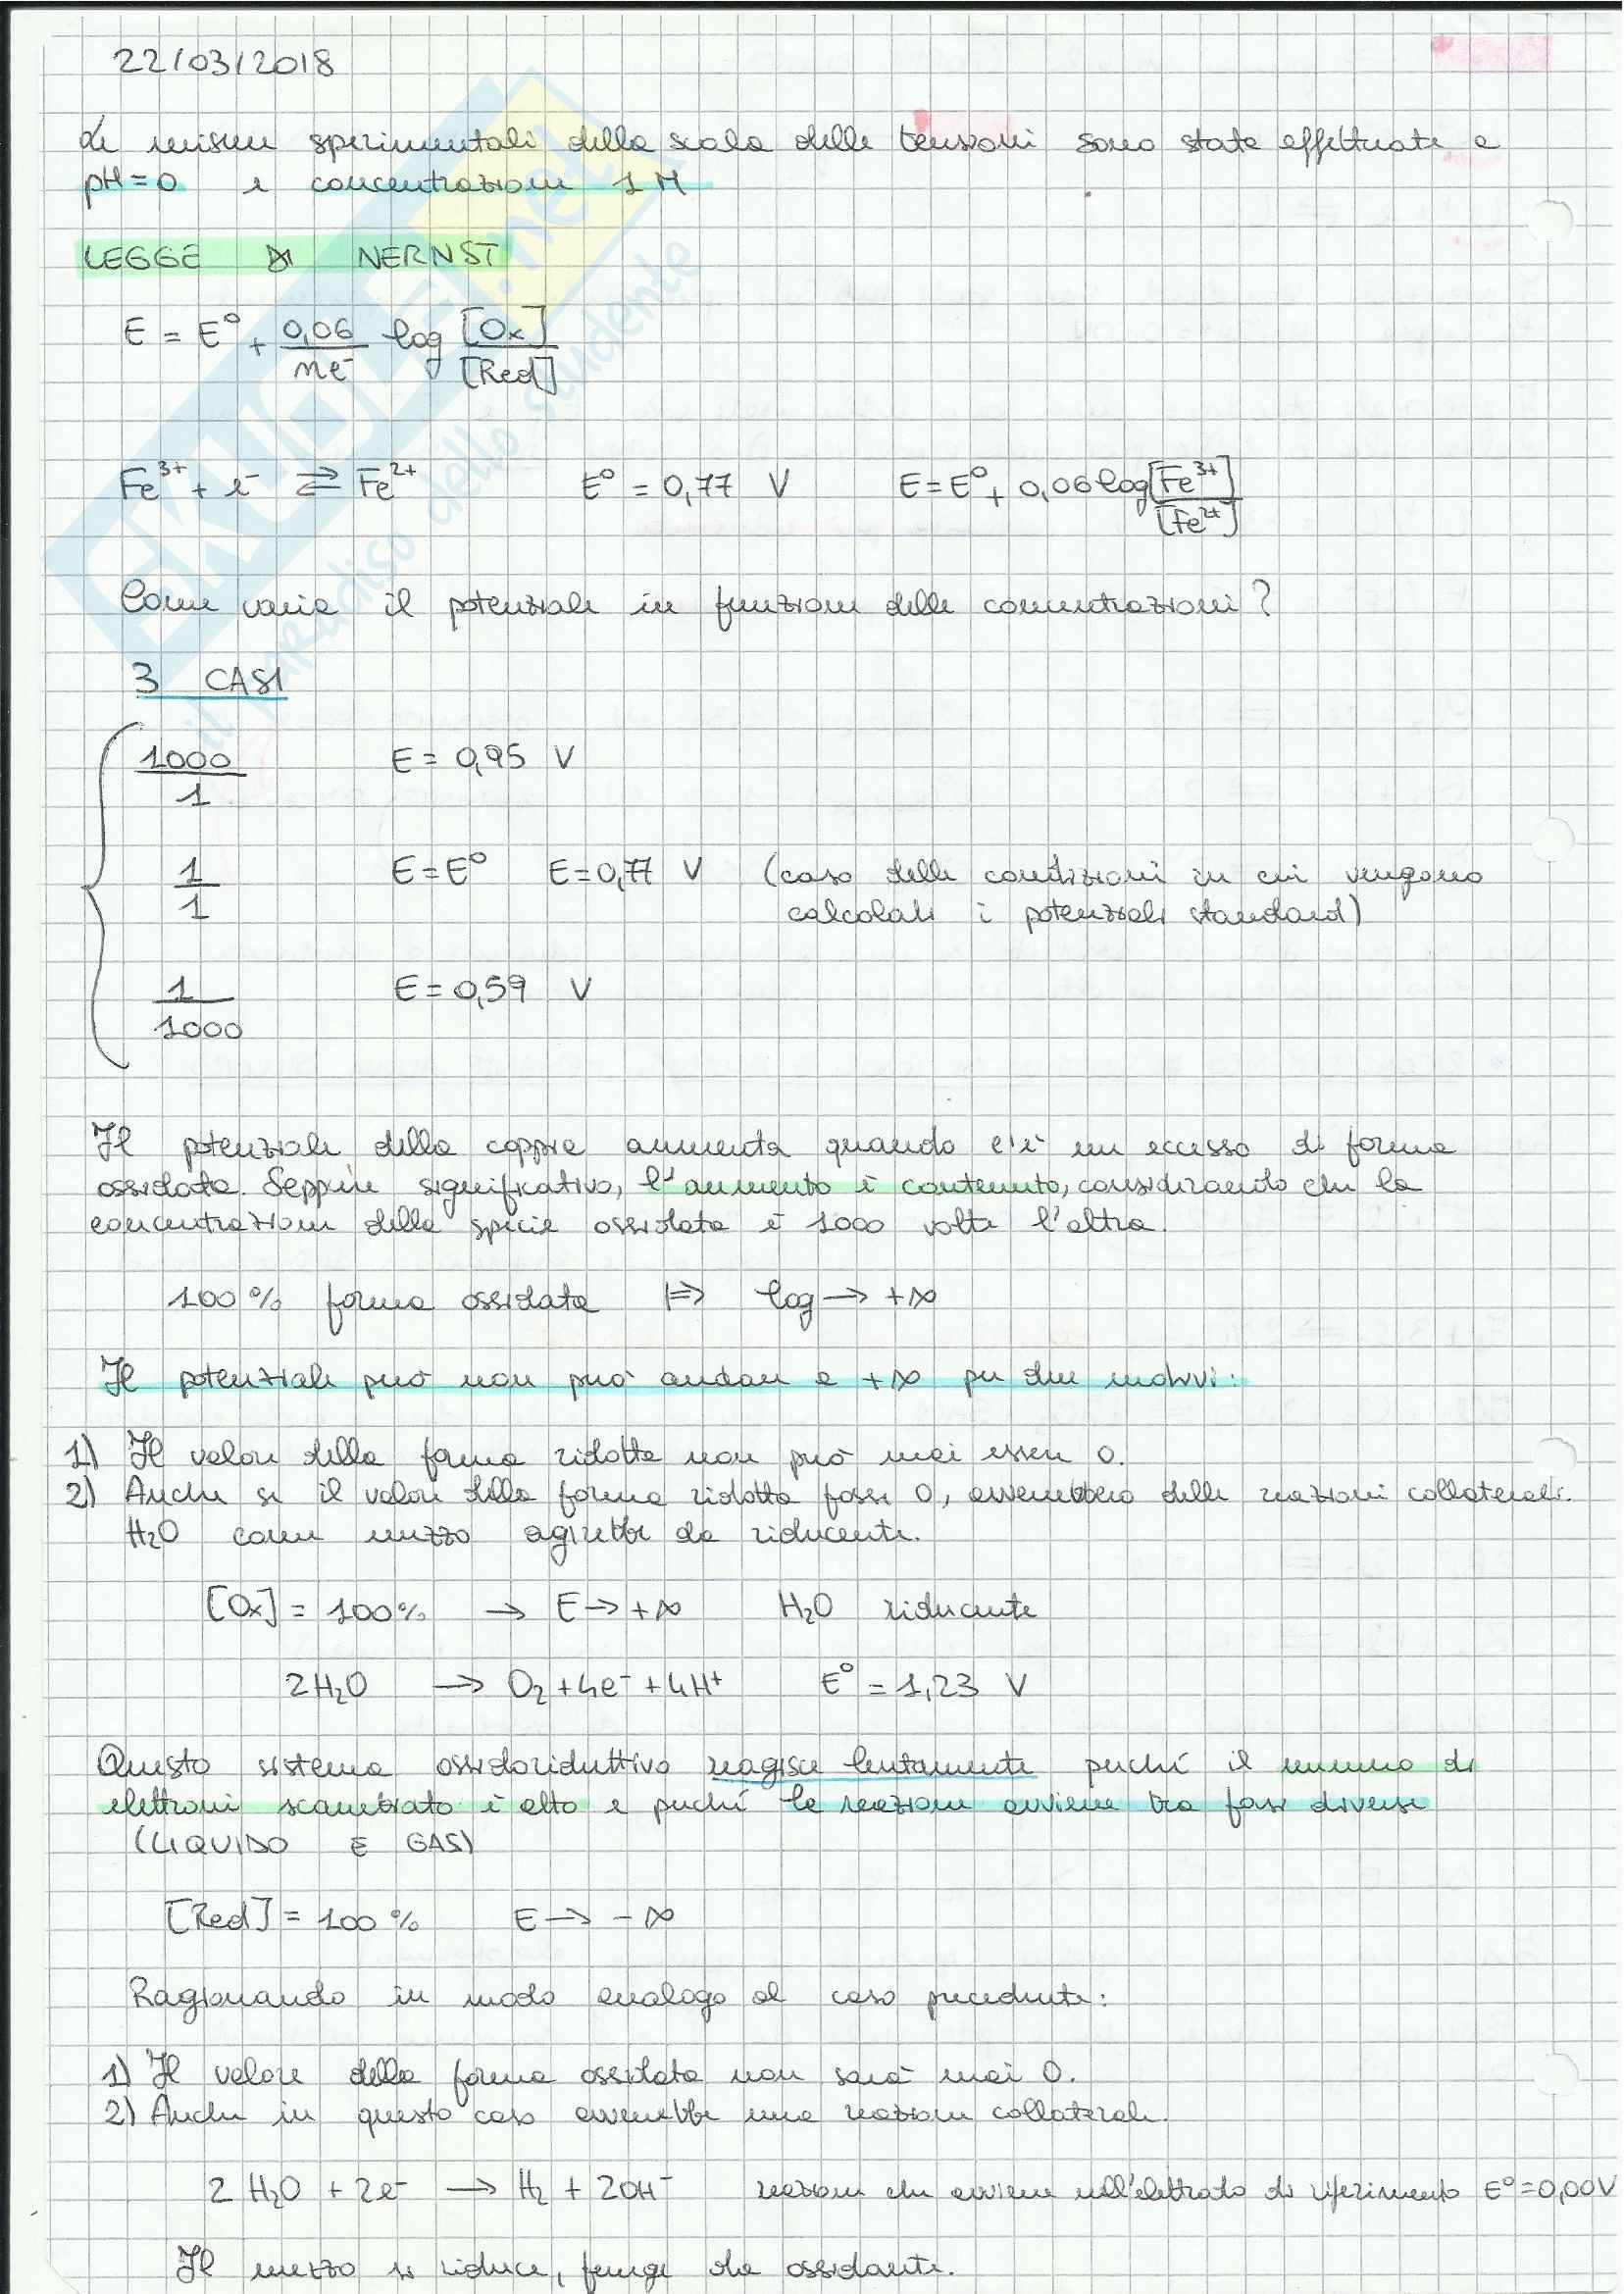 22/03/2018
Le misure sperimentali della scala delle tensioni sono state effettuate a
pH=0 e concentrazione 1 M
LEGGE DI NERNST
E = E⁰ + 0,06/ne⁻ log [Ox]/[Red]
Fe³⁺ + e⁻ ⇄ Fe²⁺ E⁰ = 0,77 V E = E⁰ + 0,06 log [Fe³⁺]/[Fe²⁺]
Come varia il potenziale in funzione delle concentrazioni?
3 CASI
1000/1 E = 0,95 V
1/1 E = E⁰ E = 0,77 V (caso delle condizioni in cui vengono
calcolati i potenziali standard)
1/1000 E = 0,59 V
Il potenziale della coppia aumenta quando c'è un eccesso di forma
ossidata. Seppur significativo, l'aumento è contenuto, considerando che la
concentrazione della specie ossidata è 1000 volte l'altra.
100% forma ossidata |⇒ log → +∞
Il potenziale però non può andare a +∞ per due motivi:
1) Il valore della forma ridotta non può mai essere 0.
2) Anche se il valore della forma ridotta fosse 0, avverrebbero delle reazioni collaterali.
H₂O come mezzo agirebbe da riducente.
[Ox] = 100% → E → +∞ H₂O riducente
2H₂O → O₂ + 4e⁻ + 4H⁺ E⁰ = 1,23 V
Questo sistema ossidoriduttivo reagisce lentamente perché il numero di
elettroni scambiato è alto e perché la reazione avviene tra fasi diverse
(LIQUIDO E GAS)
[Red] = 100% E → -∞
Ragionando in modo analogo al caso precedente:
1) Il valore della forma ossidata non sarà mai 0.
2) Anche in questo caso avverrebbe una reazione collaterale.
2 H₂O + 2e⁻ → H₂ + 2OH⁻ reazione che avviene nell'elettrodo di riferimento E⁰=0,00V
Il mezzo si riduce, funge da ossidante.
il paradiso dello studente